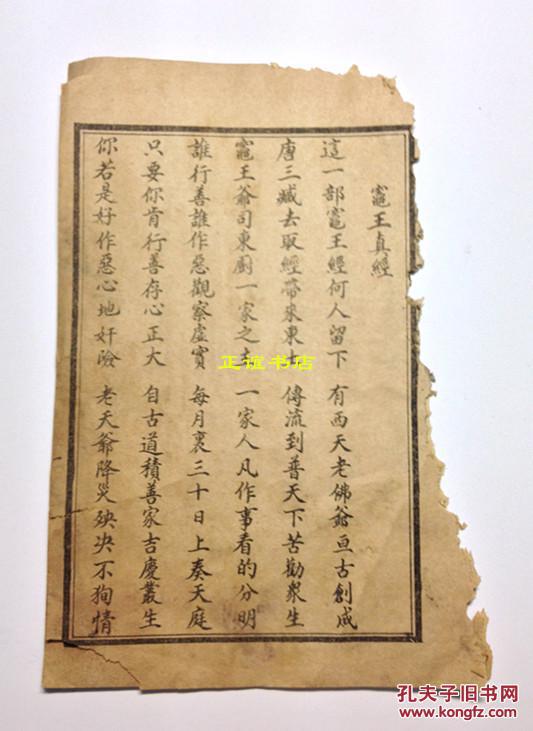 竈王真經
這一部竈王經何人留下 有西天老佛爺亘古創成
唐三藏去取經帶來東土 傳流到普天下苦勸衆生
竈王爺司東廚一家之主 一家人凡作事看的分明
誰行善誰作惡觀察虛實 每月裏三十日上奏天庭
只要你肯行善存心正大 自古道積善家吉慶叢生
你若是好作惡心地奸險 老天爺降災殃决不狥情
正谊书店
孔夫子旧书网
www.kongfz.com